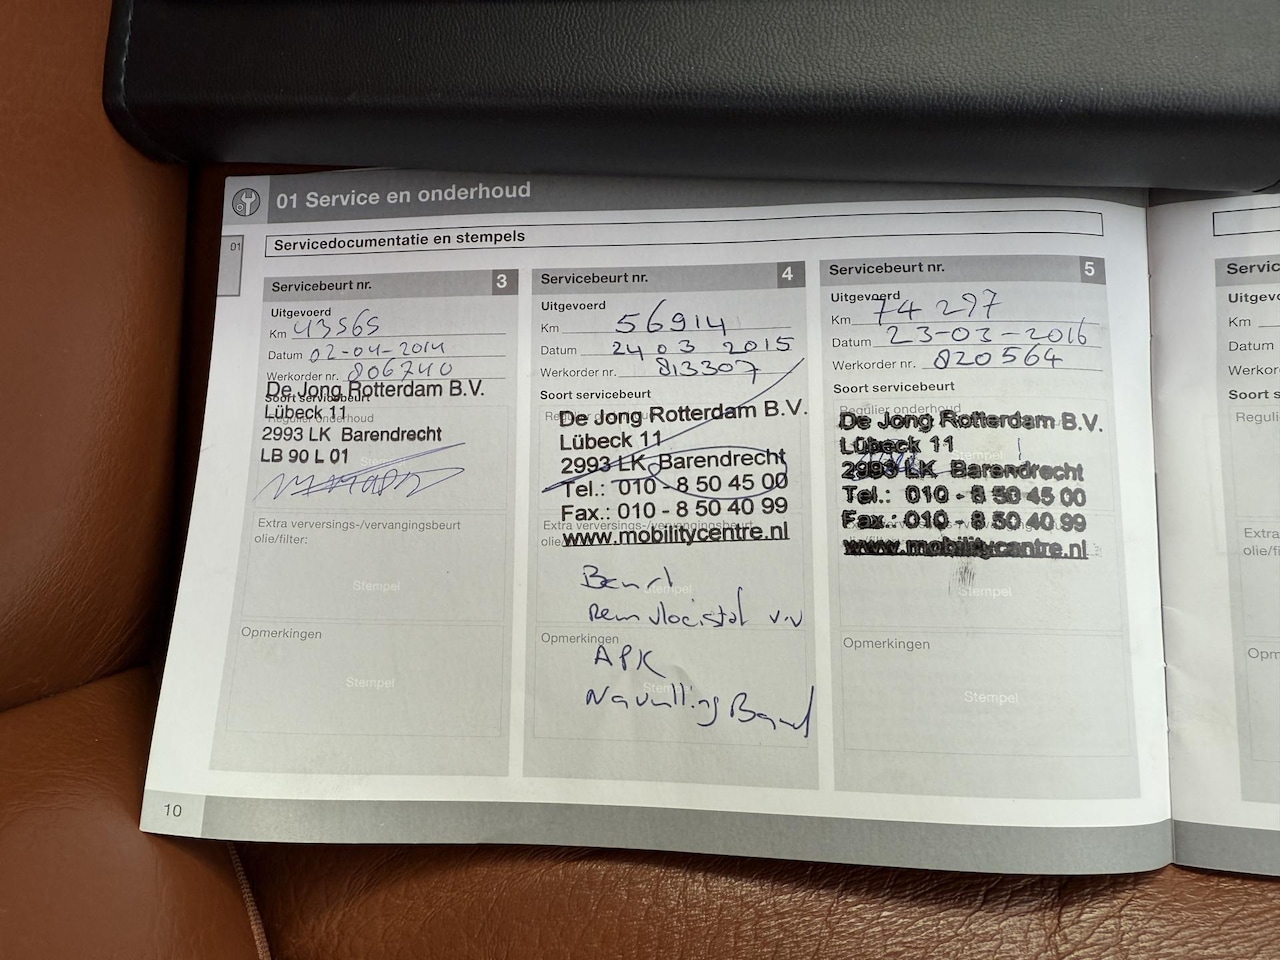 01 Service en onderhoud
01
Servicedocumentatie en stempels
Servicebeurt nr. 3
Uitgevoerd
Km 43565
Datum 02-04-2014
Werkorder nr. 806740
Soort servicebeurt
Regulier onderhoud
De Jong Rotterdam B.V.
Lübeck 11
2993 LK Barendrecht
LB 90 L 01
Extra verversings-/vervangingsbeurt
olie/filter:
Stempel
Opmerkingen
Stempel
Servicebeurt nr. 4
Uitgevoerd
Km 56914
Datum 24 03 2015
Werkorder nr. 813307
Soort servicebeurt
Regulier onderhoud
De Jong Rotterdam B.V.
Lübeck 11
2993 LK Barendrecht
Tel.: 010 - 8 50 45 00
Fax.: 010 - 8 50 40 99
Extra verversings-/vervangingsbeurt
olie/
www.mobilitycentre.nl
Beurt
Stempel
Remvloeistof v.v
Opmerkingen
APK
Stempel
Navulling Band
Servicebeurt nr. 5
Uitgevoerd
Km 74 297
Datum 23-03-2016
Werkorder nr. 820564
Soort servicebeurt
Regulier onderhoud
De Jong Rotterdam B.V.
Lübeck 11
2993 LK Barendrecht
Tel.: 010 - 8 50 45 00
Fax.: 010 - 8 50 40 99
www.mobilitycentre.nl
Stempel
Opmerkingen
Stempel
10
Servic
Uitgevo
Km
Datum
Werkor
Soort s
Reguli
Extra
olie/fi
Opm